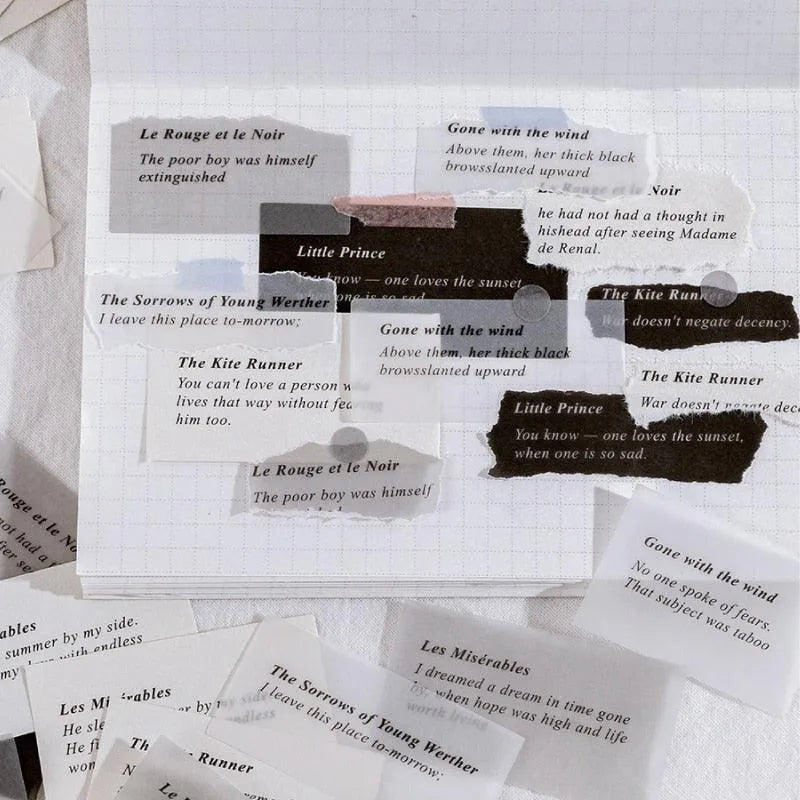 Le Rouge et le Noir
The poor boy was himself
extinguished
Gone with the wind
Above them, her thick black
browsslanted upward
Le Rouge et le Noir
he had not had a thought in
hishead after seeing Madame
de Renal.
Little Prince
You know — one loves the sunset
one is so sad
The Sorrows of Young Werther
I leave this place to-morrow;
The Kite Runner
War doesn't negate decency.
Gone with the wind
Above them, her thick black
browsslanted upward
The Kite Runner
You can't love a person w
lives that way without fearing
him too.
The Kite Runner
War doesn't negate dece
Little Prince
You know — one loves the sunset,
when one is so sad.
Le Rouge et le Noir
The poor boy was himself
Rouge et le No
not had a t
fter se
Gone with the wind
No one spoke of fears.
That subject was taboo
ables
summer by my side.
my days with endless
Les Misérables
I dreamed a dream in time gone
by, when hope was high and life
worth living
The Sorrows of Young Werther
I leave this place to-morrow;
Les Misérables
He sle
He fi
won
er by my side
endless
Th Runner
N
Le